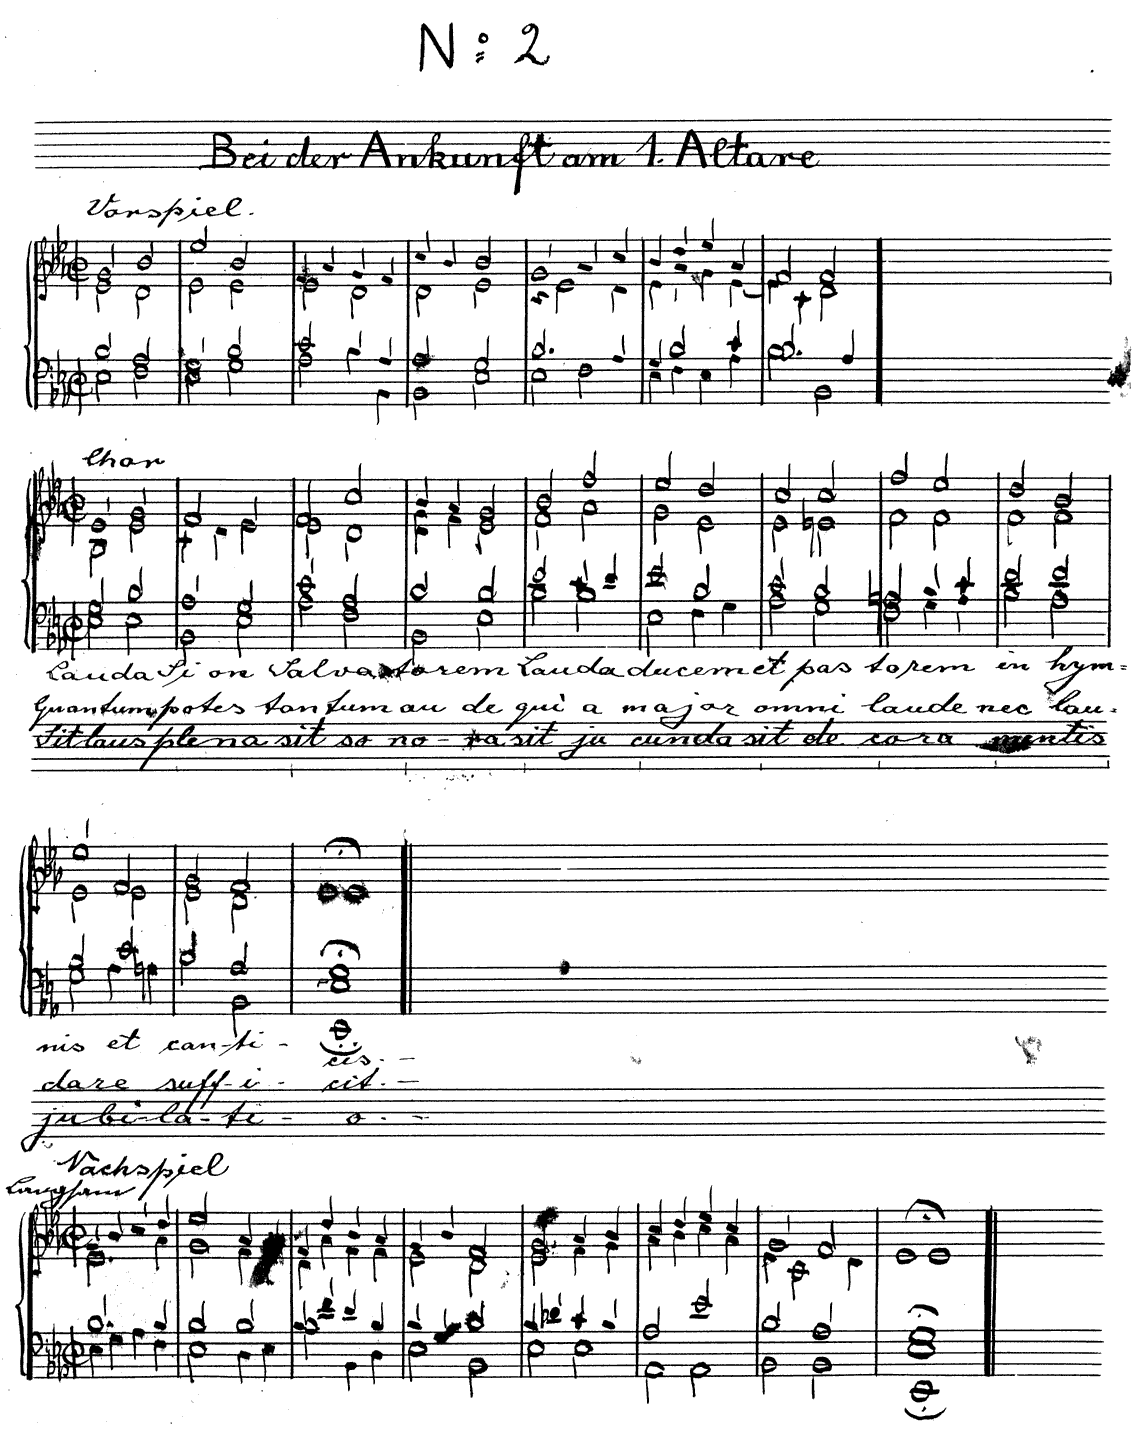 N: 2
Bei der Ankunft am 1. Altare
Vorspiel.
Chor
Lauda Si on Salvatorem Lauda ducem et pas torem in hym=
Quantum potes tantum au de qui a major omni laude nec lau-
Sit laus plena sit so no-ra sit ju cunda sit de cora mentis
nis et can-ti- cis. -
dare suff-i- cit. -
jubi-la-ti- o. -
Nachspiel
Langsam